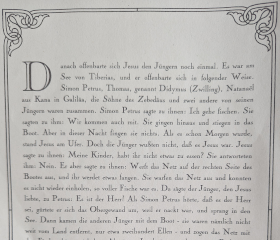 Danach offenbarte sich Jesus den Jüngern noch einmal. Es war am
See von Tiberias, und er offenbarte sich in folgender Weise.
Simon Petrus, Thomas, genannt Didymus (Zwilling), Natanael
aus Kana in Galiläa, die Söhne des Zebedäus und zwei andere von seinen
Jüngern waren zusammen. Simon Petrus sagte zu ihnen: Ich gehe fischen. Sie
sagten zu ihm: Wir kommen auch mit. Sie gingen hinaus und stiegen in das
Boot. Aber in dieser Nacht fingen sie nichts. Als es schon Morgen wurde,
stand Jesus am Ufer. Doch die Jünger wußten nicht, daß es Jesus war. Jesus
sagte zu ihnen: Meine Kinder, habt ihr nicht etwas zu essen? Sie antworteten
ihm: Nein. Er aber sagte zu ihnen: Werft das Netz auf der rechten Seite des
Bootes aus, und ihr werdet etwas fangen. Sie warfen das Netz aus und konnten
es nicht wieder einholen, so voller Fische war es. Da sagte der Jünger, den Jesus
liebte, zu Petrus: Es ist der Herr! Als Simon Petrus hörte, daß es der Herr
sei, gürtete er sich das Obergewand um, weil er nackt war, und sprang in den
See. Dann kamen die anderen Jünger mit dem Boot - sie waren nämlich nicht
weit vom Land entfernt, nur etwa zweihundert Ellen - und zogen das Netz mit